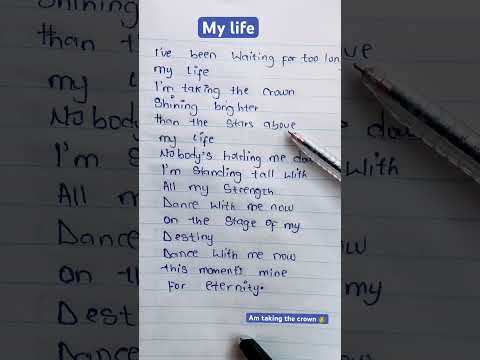 My life
I've been waiting for too long
my life
I'm taking the crown
Shining brighter
than the stars above
my life
Nobody's holding me dow
I'm standing tall with
All my strength
Dance with me now
on the stage of my
Destiny
Dance with me now
this moment's mine
For eternity.
Am taking the crown